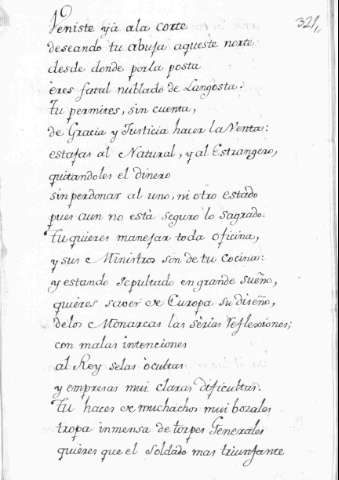 19
321,
Veniste yà ala corte
deseando tu abuja aqueste norte
desde donde porla posta
eres fatal nublado de Langosta:
Tu permites, sin cuenta,
de Gracia y Justicia hacer la Venta:
estafas al Natural, y al Estrangero,
quitandoles el dinero
sin perdonar al uno, ni otro estado
pues aun no està seguro lo Sagrado.
Tu quieres manejar toda oficina,
y sus Ministros son de tu Cocina:
y estando sepultado en grande sueño,
quieres saver de Europa su diseño,
delos Monarcas las sèrias reflexiones;
con malas intenciones
al Rey selas ocultas
y empresas mui claras dificultas.
Tu haces de muchachos mui bozales
tropa inmensa de torpes Generales
quieres que el soldado mas triunfante